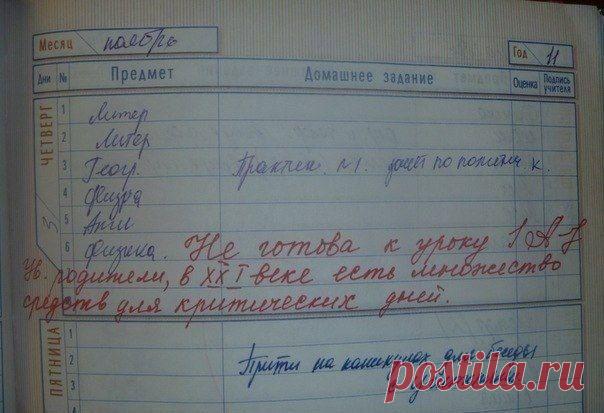 Месяц ноябрь
Год 11
Дни № Предмет Домашнее задание Оценка Подпись учителя
ЧЕТВЕРГ 3
1 Литер
2 Литер
3 Геогр. Практич. №1. по политич. к.
4 Физра
5 Англ
6 Физика. Не готова к уроку
Ув. родители, в XXI веке есть множество
средств для критических дней.
ПЯТНИЦА
1 Прийти на каникулах для беседы
2
3
postila.ru